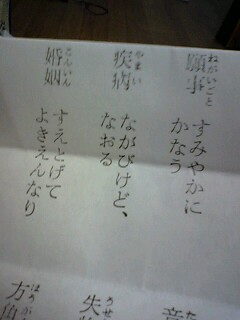 ねがいごと
願事
すみやかに
かなう
やまい
疾病
ながびけど、
なおる
こんいん
婚姻
すえとげて
よきえんなり
うせ
失
ほうが
方角